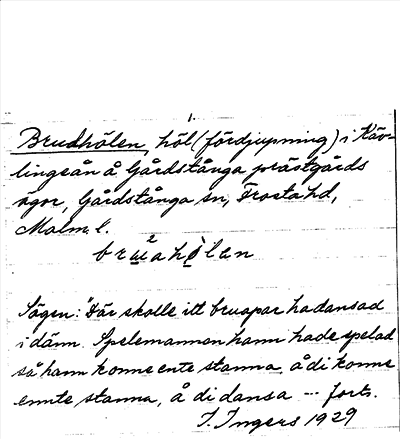 1.
Brudhölen, höl (fördjupning) i Käv-
lingeån å Gårdstånga prästgårds
ägor, Gårdstånga sn, Frosta hd,
Malm. l.
brueahölen
Sägen: "Där skolle itt bruapar ha dansad
i dänn. Spelemannen hann hade spelad
så hann konne ente stanna, å di konne
ennte stanna, å di dansa --- forts.
I. Ingers 1929